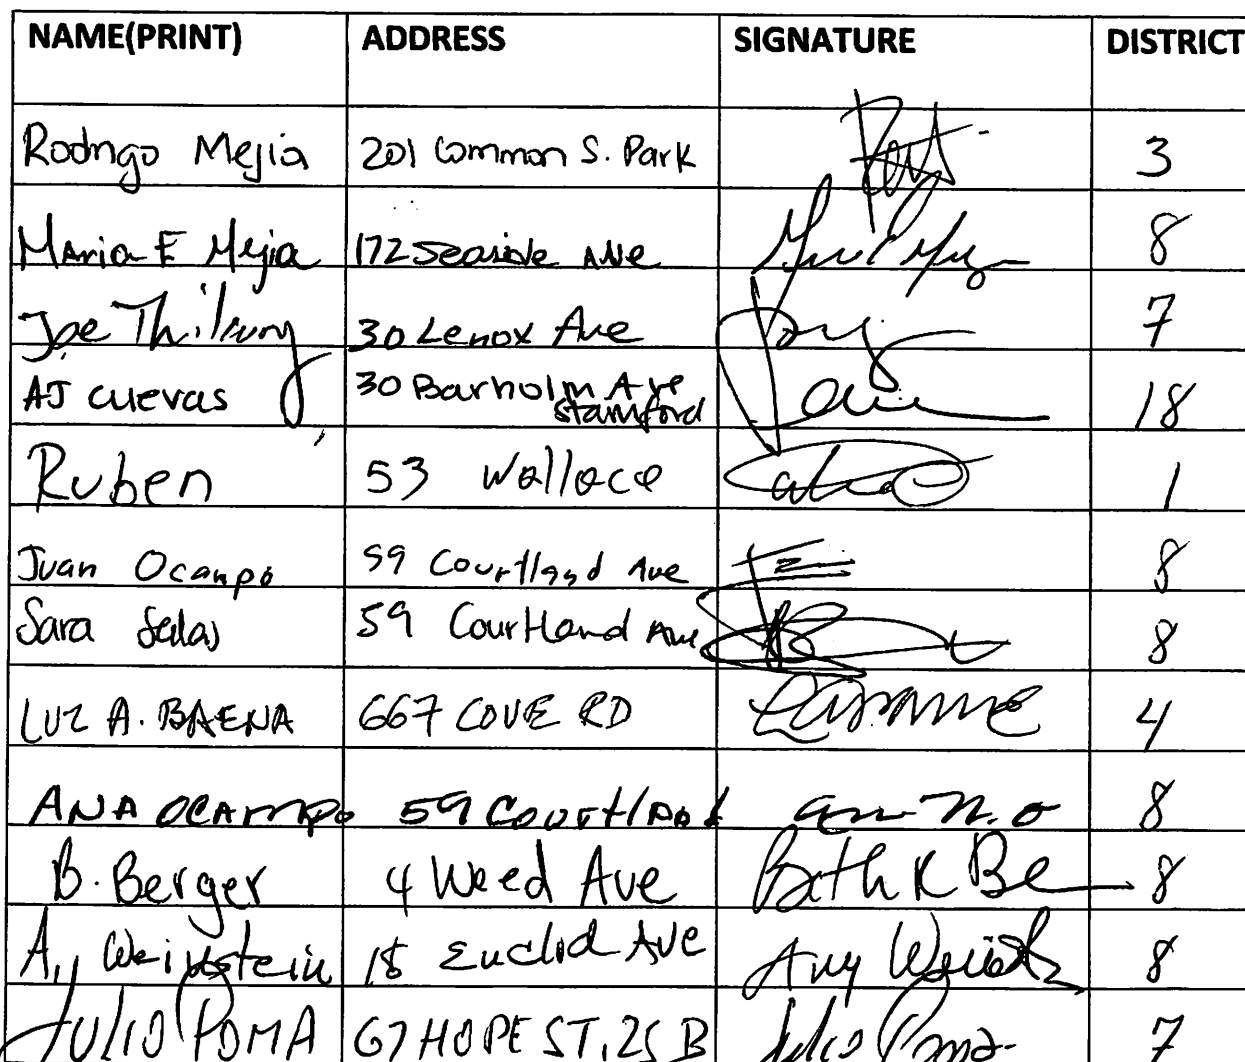 NAME(PRINT) ADDRESS SIGNATURE DISTRICT
Rodrigo Mejia 201 Common S. Park 3
Maria E Mejia 172 Seaside Ave 8
Joe 30 Lenox Ave 7
AJ cuevas 30 Barholm Ave
Stamford 18
Ruben 53 Wallace 1
Juan Ocampo 59 Courtland Ave 8
Sara Salas 59 Courtland Ave 8
LUZ A. BAENA 667 COVE RD 4
ANA OCAMPO 59 Courtland 8
B. Berger 4 Weed Ave Beth K Be 8
A. Weinstein 18 Euclid AVE Amy Weinst 8
JULIO POMA 67 HOPE ST, 25 B Julio Poma 7